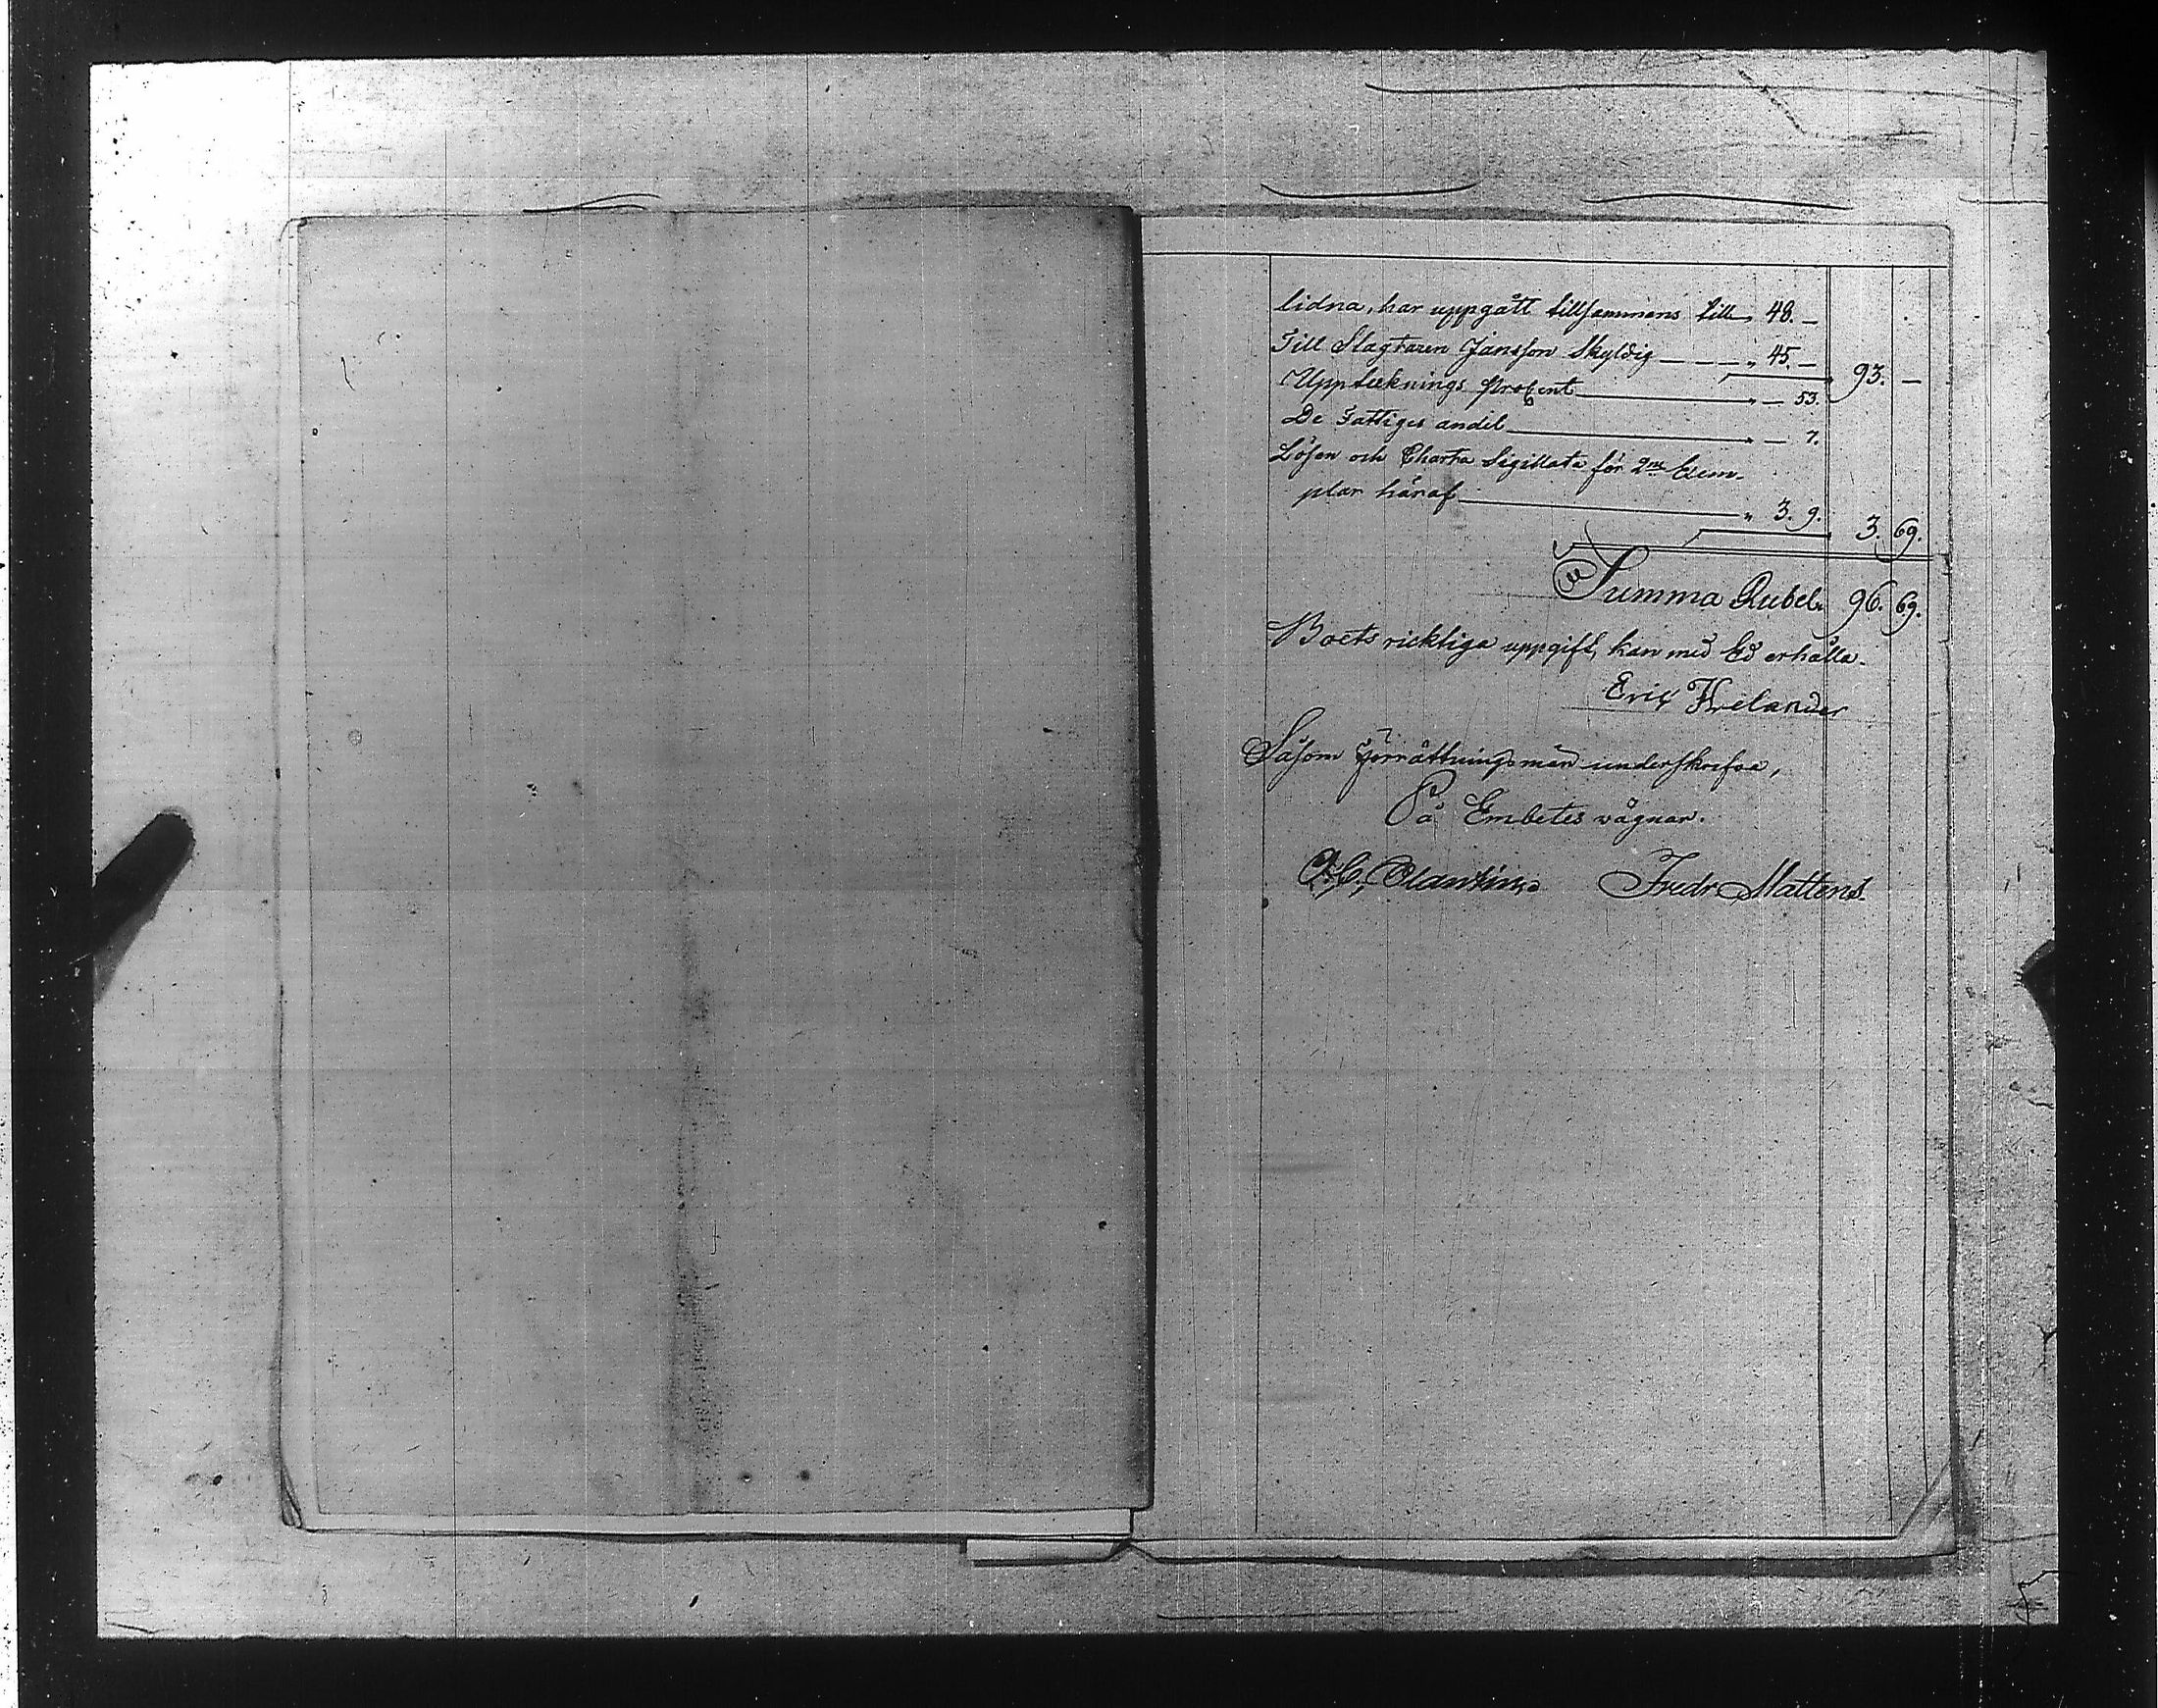 lidna, har uppgått tillsammans till " 48. —
Till Slagtaren Jansson Skyldig — — — " 45. — 93. —
Upptecknings Procent — " — 53.
De Fattiges andel — " — 7.
Lösen och Charta Sigillata för 2ne Exem-
plar häraf — " 3. 9. 3. 69.
Summa Rubel 96. 69.
Boets ricktiga uppgift, kan med Ed erhålla.
Eric Frelander
Såsom Förrättningsmän underskrifva,
På Embetes vägnar.
Fredr Mattens.